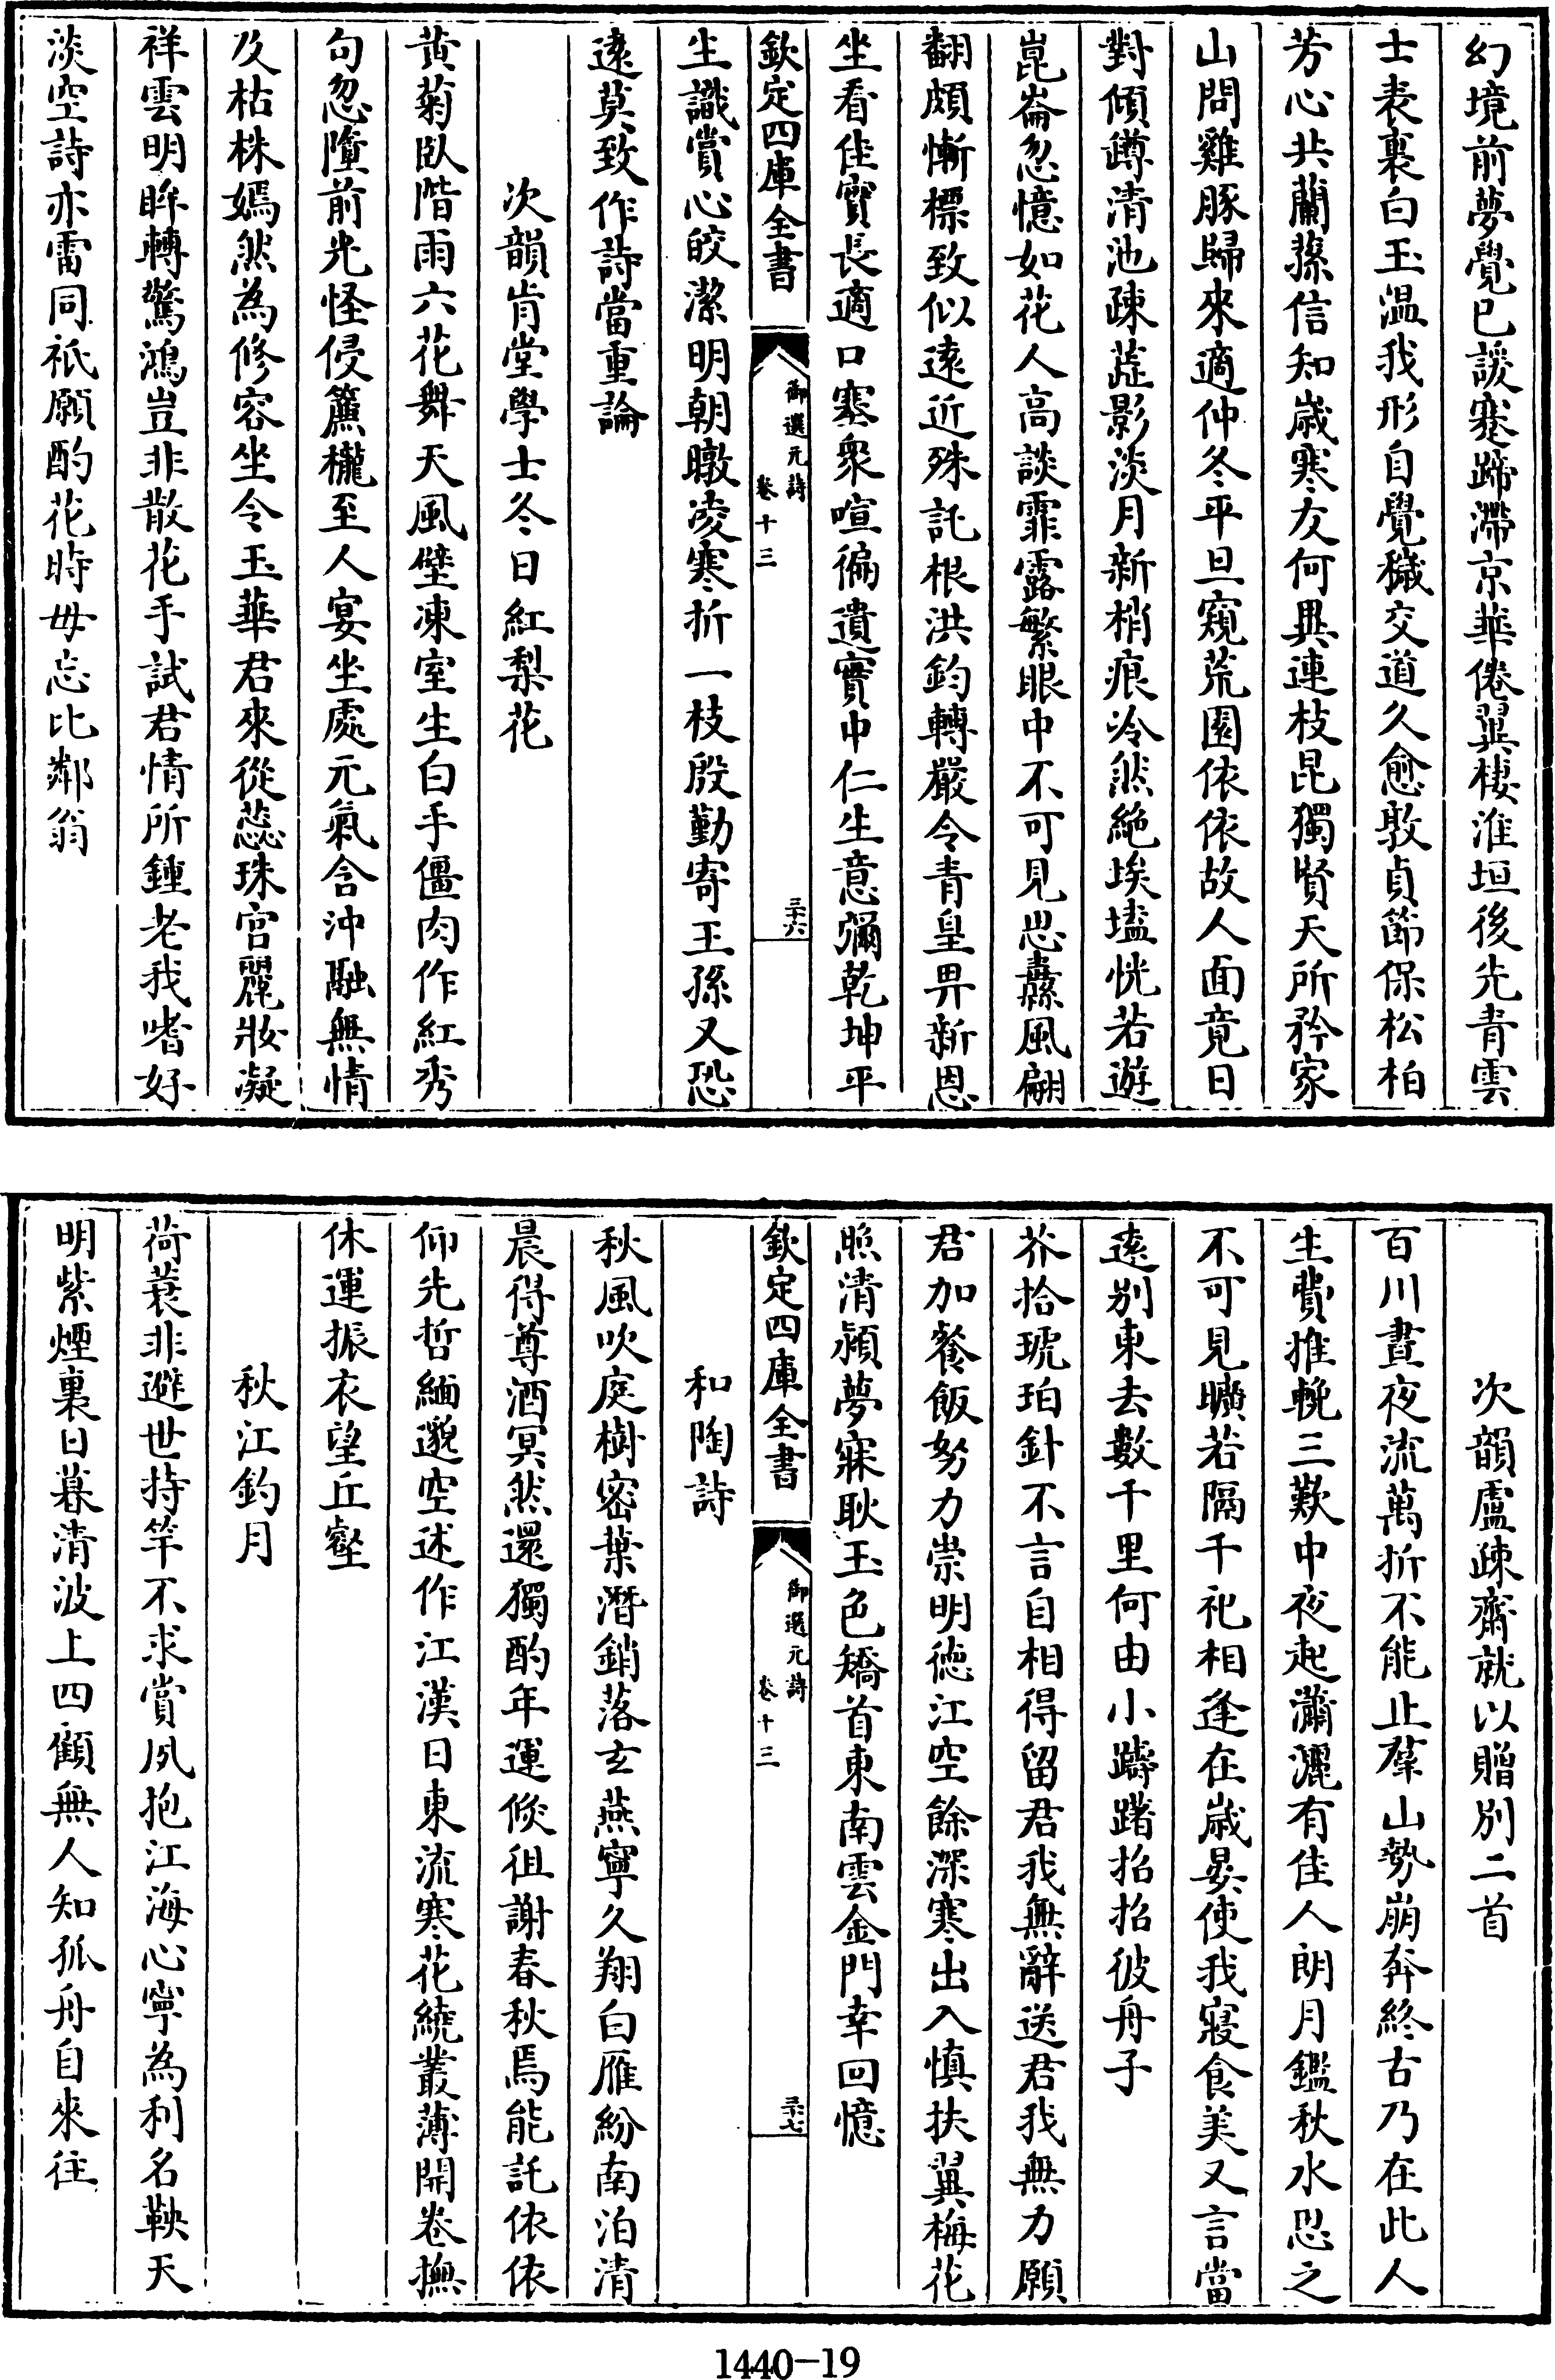 幻境前夢覺已諼蹇蹄滯京華倦翼棲淮垣後先青雲
士表裏白玉温我形自覺穢交道久愈敦貞節保松柏
芳心共蘭蓀信知歲寒友何異連枝昆獨賢天所矜家
山問雞豚歸來適仲冬平旦窺荒園依依故人面竟日
對傾蹲清池疎蕋影淡月新梢痕冷然絶埃壒恍若遊
崑崙忽憶如花人高談霏露繁眼中不可見思纛風翩
翻頗慚標致似遠近殊託根洪鈞轉嚴令青皇畀新恩
坐看佳實長適口塞衆喧徧遺實中仁生意彌乾坤平
欽定四庫全書
御選元詩
卷十三
三十六
生識賞心皎潔明朝暾凌寒折一枝殷勤寄王孫又恐
遠莫致作詩當重論
次韻肯堂學士冬日紅梨花
黄菊臥階雨六花舞天風壁凍室生白手僵肉作紅秀
句忽墮前光怪侵簾櫳至人宴坐處元氣含沖融無情
及枯株嫣然為修容坐令玉華君來從蕊珠宮麗妝凝
祥雲明眸轉驚鴻豈非散花手試君情所鍾老我嗜好
淡空詩亦雷同祇願酌花時毋忘比鄰翁
次韻盧疎齋就以贈别二首
百川晝夜流萬折不能止羣山勢崩奔終古乃在此人
生費推輓三歎中夜起瀟灑有佳人朗月鑑秋水思之
不可見曠若隔千祀相逢在歲晏使我寢食美又言當
遠别東去數千里何由小躊躇招招彼舟子
芥拾琥珀針不言自相得留君我無辭送君我無力願
君加餐飯努力崇明徳江空餘深寒出入慎扶翼梅花
照清潁夢寐耿玉色矯首東南雲金門幸回憶
欽定四庫全書
御選元詩
卷十三
三十七
和陶詩
秋風吹庭樹密葉潛銷落玄燕寧久翔白雁紛南泊清
晨得尊酒冥然還獨酌年運倐徂謝春秋焉能託依依
仰先哲緬邈空述作江漢日東流寒花繞叢薄開卷撫
休運振衣望丘壑
秋江釣月
荷蓑非避世持竿不求賞夙抱江海心寧為利名鞅天
明紫煙裏日暮清波上四顧無人知孤舟自來往
1440—19